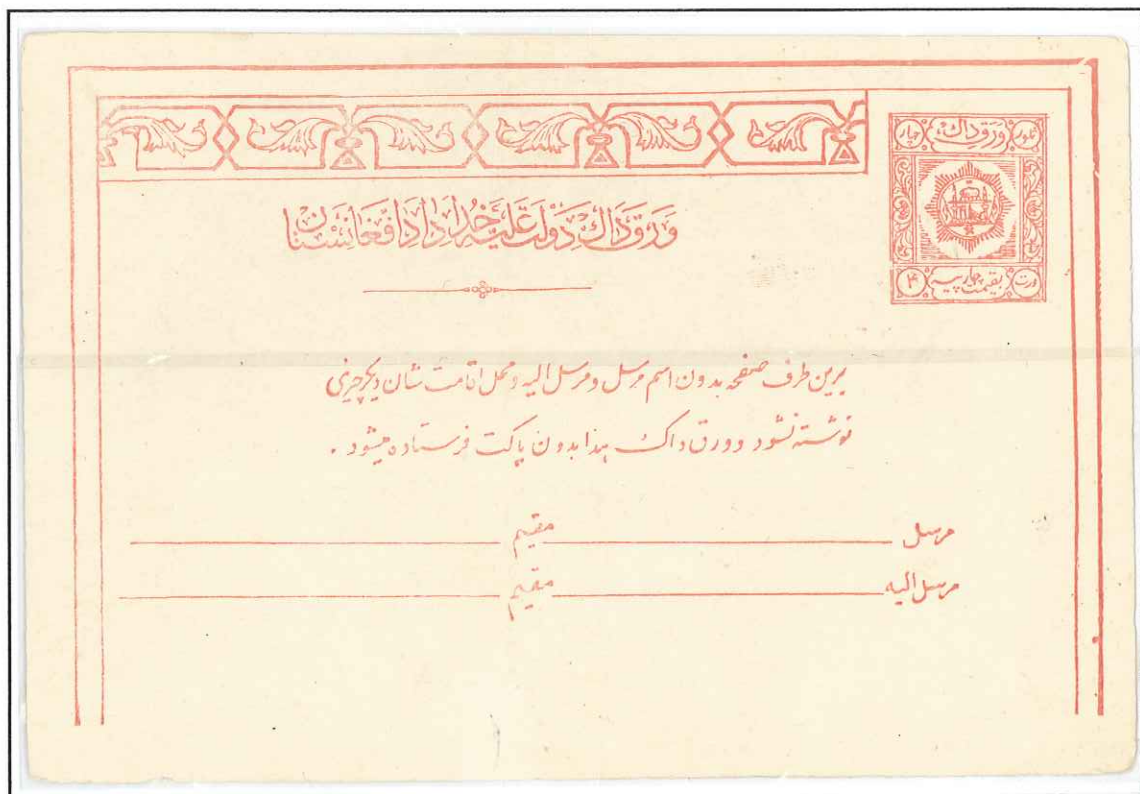 ورق داک
چهار
وَرَق دَاک دَولَتِ عَلیّه خُدادادِ افغانستان
بقیمت چهار پیسه
۴
برین طرف صفحه بدون اسم مرسل و مرسل الیه و محل اقامت شان دیگر چیزی
نوشته نشود و ورق داک هذا بدون پاکت فرستاده میشود .
مرسل ــــــ مقیم ــــــ
مرسل الیه ــــــ مقیم ــــــ